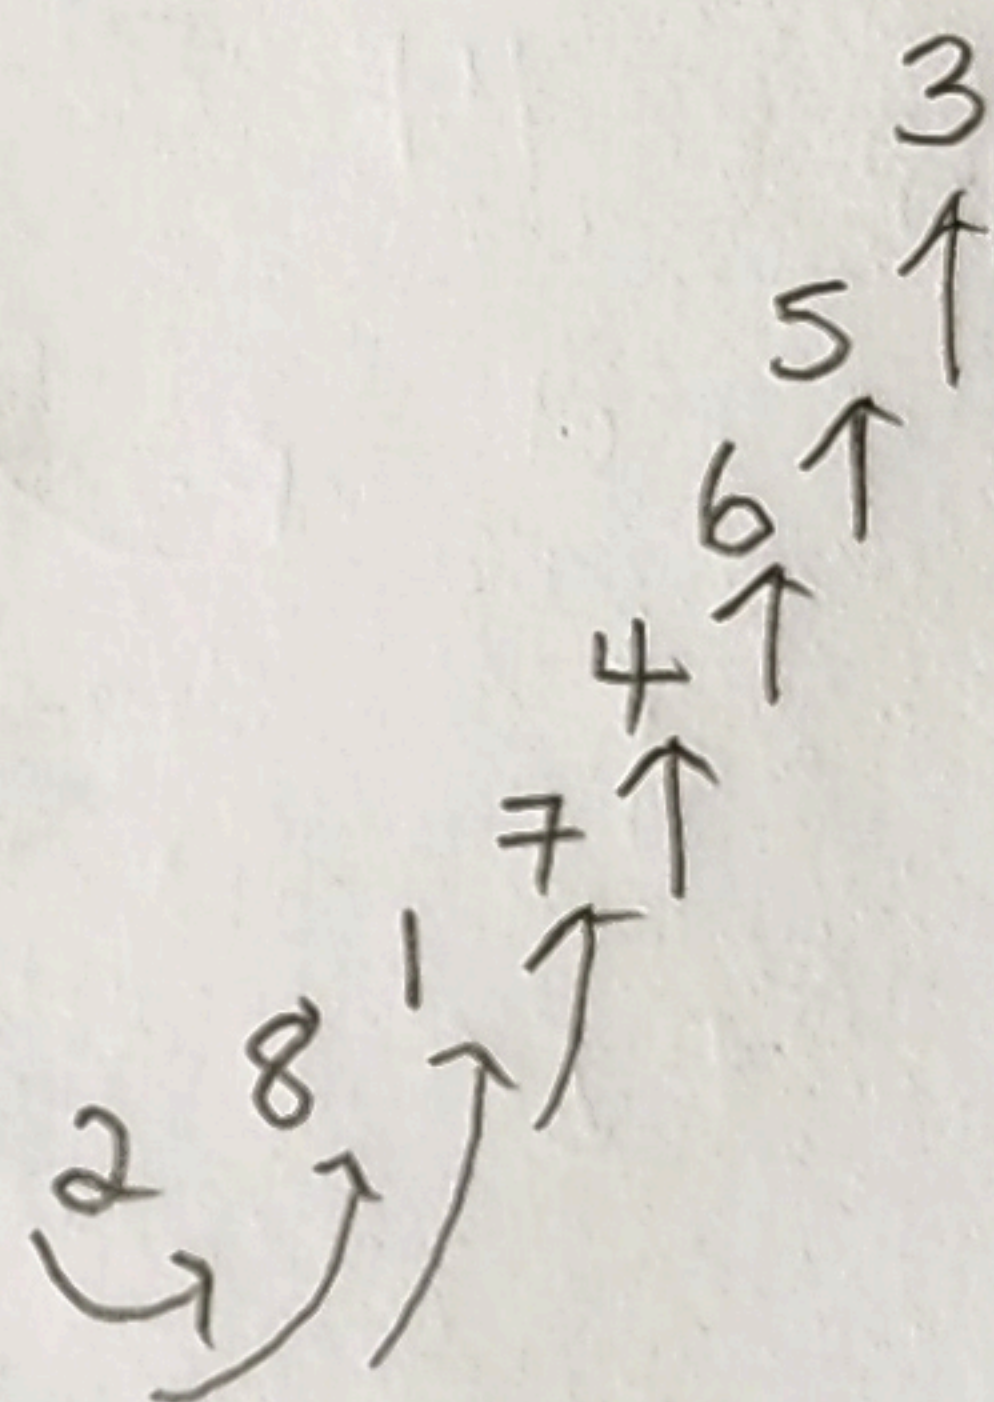 3
5
6
4
7
1
8
2